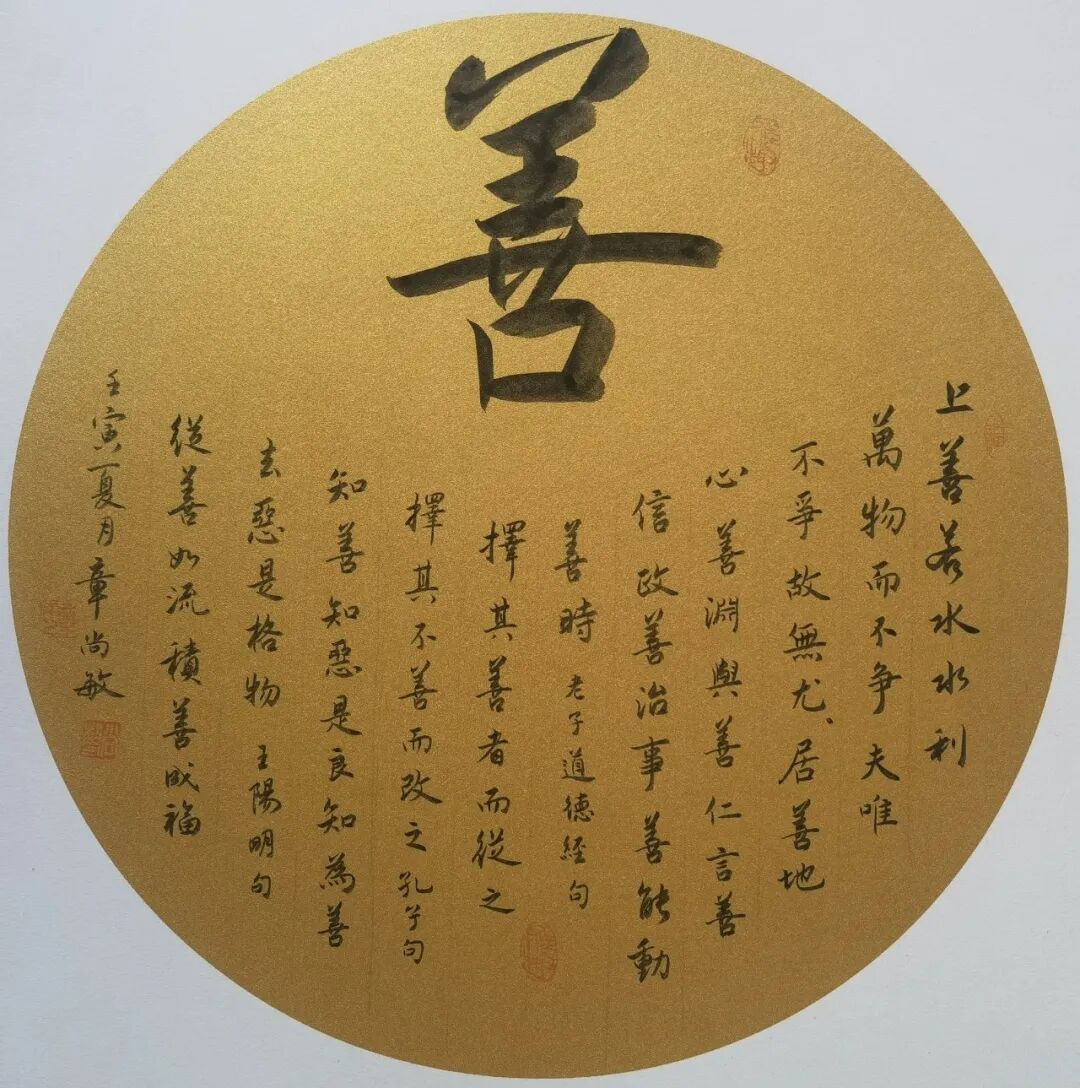 善
上善若水水利
萬物而不争夫唯
不爭故無尤、居善地
心善淵與善仁言善
信政善治事善能動
善時 老子道德經句
擇其善者而從之
擇其不善而改之 孔子句
知善知惡是良知為善
去惡是格物 王陽明句
從善如流積善成福
壬寅夏月章尚敏